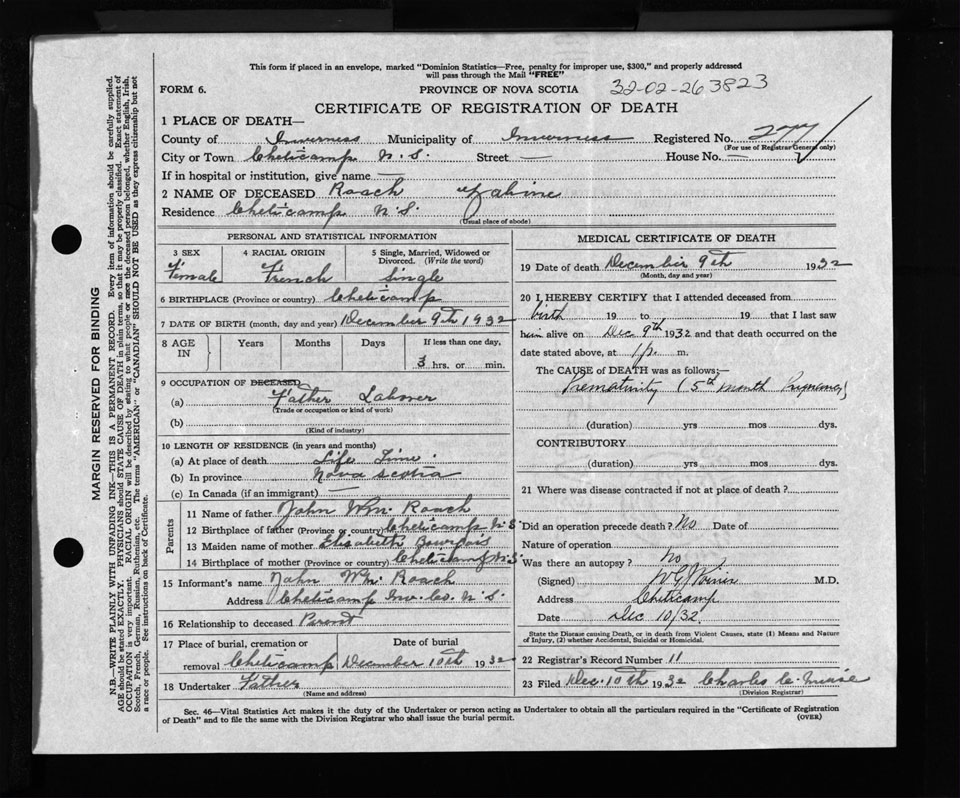 This form if placed in an envelope, marked "Dominion Statistics—Free, penalty for improper use, $300," and properly addressed
will pass through the Mail "FREE"
FORM 6.
PROVINCE OF NOVA SCOTIA 32-02-263823
CERTIFICATE OF REGISTRATION OF DEATH
1 PLACE OF DEATH—
County of Inverness Municipality of Inverness Registered No. 277
(For use of Registrar General only)
City or Town Cheticamp N.S. Street — House No. —
If in hospital or institution, give name —
2 NAME OF DECEASED Roach
Residence Cheticamp N.S.
(Usual place of abode)
PERSONAL AND STATISTICAL INFORMATION
3 SEX 4 RACIAL ORIGIN 5 Single, Married, Widowed or
Divorced. (Write the word)
Female French Single
6 BIRTHPLACE (Province or country) Cheticamp
7 DATE OF BIRTH (month, day and year) December 9th 1932
8 AGE IN Years Months Days If less than one day,
3 hrs. or min.
9 OCCUPATION OF DECEASED
(a) Father Labourer
(Trade or occupation or kind of work)
(b)
(Kind of industry)
10 LENGTH OF RESIDENCE (in years and months)
(a) At place of death Life Time
(b) In province Nova Scotia
(c) In Canada (if an immigrant) —
Parents
11 Name of father John Wm. Roach
12 Birthplace of father (Province or country) Cheticamp N.S.
13 Maiden name of mother Elisabeth
14 Birthplace of mother (Province or country) Cheticamp N.S.
15 Informant's name John Wm. Roach
Address Cheticamp Inv. Co. N.S.
16 Relationship to deceased Parent
17 Place of burial, cremation or Date of burial
removal Cheticamp December 10th 1932
18 Undertaker Father
(Name and address)
MEDICAL CERTIFICATE OF DEATH
19 Date of death December 9th 1932
(Month, day and year)
20 I HEREBY CERTIFY that I attended deceased from
birth 19 to 19 that I last saw
him alive on Dec 9th 1932 and that death occurred on the
date stated above, at 1 p. m.
The CAUSE of DEATH was as follows:—
Prematurity (5th month Pregnancy)
(duration) yrs mos dys.
CONTRIBUTORY
(duration) yrs mos dys.
21 Where was disease contracted if not at place of death?
Did an operation precede death? No Date of
Nature of operation
Was there an autopsy? No
(Signed) M.D.
Address Cheticamp
Date Dec 10/32
State the Disease causing Death, or in death from Violent Causes, state (1) Means and Nature
of Injury, (2) whether Accidental, Suicidal or Homicidal.
22 Registrar's Record Number 11
23 Filed Dec. 10th 1932 Charles
(Division Registrar)
Sec. 46—Vital Statistics Act makes it the duty of the Undertaker or person acting as Undertaker to obtain all the particulars required in the "Certificate of Registration
of Death" and to file the same with the Division Registrar who shall issue the burial permit.
(OVER)
MARGIN RESERVED FOR BINDING
N.B.—WRITE PLAINLY WITH UNFADING INK—THIS IS A PERMANENT RECORD. Every item of information should be carefully supplied.
AGE should be stated EXACTLY. PHYSICIANS should STATE CAUSE OF DEATH in plain terms, so that it may be properly classified. Exact statement of
OCCUPATION is very important. RACIAL ORIGIN will be described by stating to what people or race the deceased person belonged, whether English, Irish,
Scotch, French, German, Russian, Ruthenian, etc. The terms "AMERICAN" or "CANADIAN" SHOULD NOT BE USED as they express citizenship but not
a race or people. See instructions on back of Certificate.